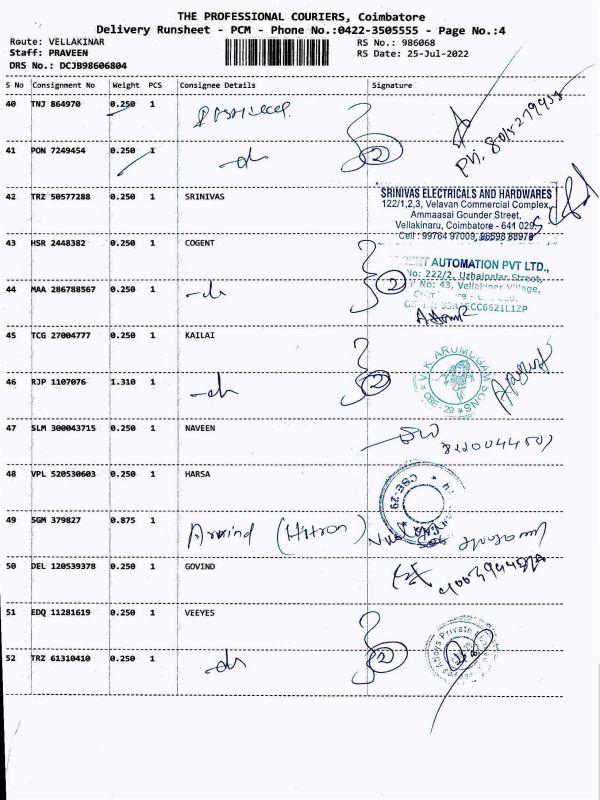 THE PROFESSIONAL COURIERS, Coimbatore
Delivery Runsheet - PCM - Phone No.:0422-3505555 - Page No.:4
Route: VELLAKINAR RS No.: 986068
Staff: PRAVEEN RS Date: 25-Jul-2022
DRS No.: DCJB98606804
S No Consignment No Weight PCS Consignee Details Signature
40 TNJ 864970 0.250 1
Ph.
41 PON 7249454 0.250 1 -do- 2
42 TRZ 50577288 0.250 1 SRINIVAS
SRINIVAS ELECTRICALS AND HARDWARES
122/1,2,3, Velavan Commercial Complex,
Ammaasai Gounder Street,
Vellakinaru, Coimbatore - 641 029.
Cell : 99764 97009, 98598 88978
43 HSR 2448382 0.250 1 COGENT
AUTOMATION PVT LTD.,
No: 222/2, Uzhaipalar Street,
No: 43, Vellakinar Village,
44 MAA 286788567 0.250 1 -do- 2
45 TCG 27004777 0.250 1 KAILAI
V.K. ARUMUGAM SONS
* CBE-29 *
46 RJP 1107076 1.310 1 -do- 2
47 SLM 300043715 0.250 1 NAVEEN
48 VPL 520530603 0.250 1 HARSA
CBE-29
49 SGM 379827 0.875 1 Arvind (Hitron)
50 DEL 120539378 0.250 1 GOVIND
51 EDQ 11281619 0.250 1 VEEYES
Private
52 TRZ 61310410 0.250 1 -do- 2